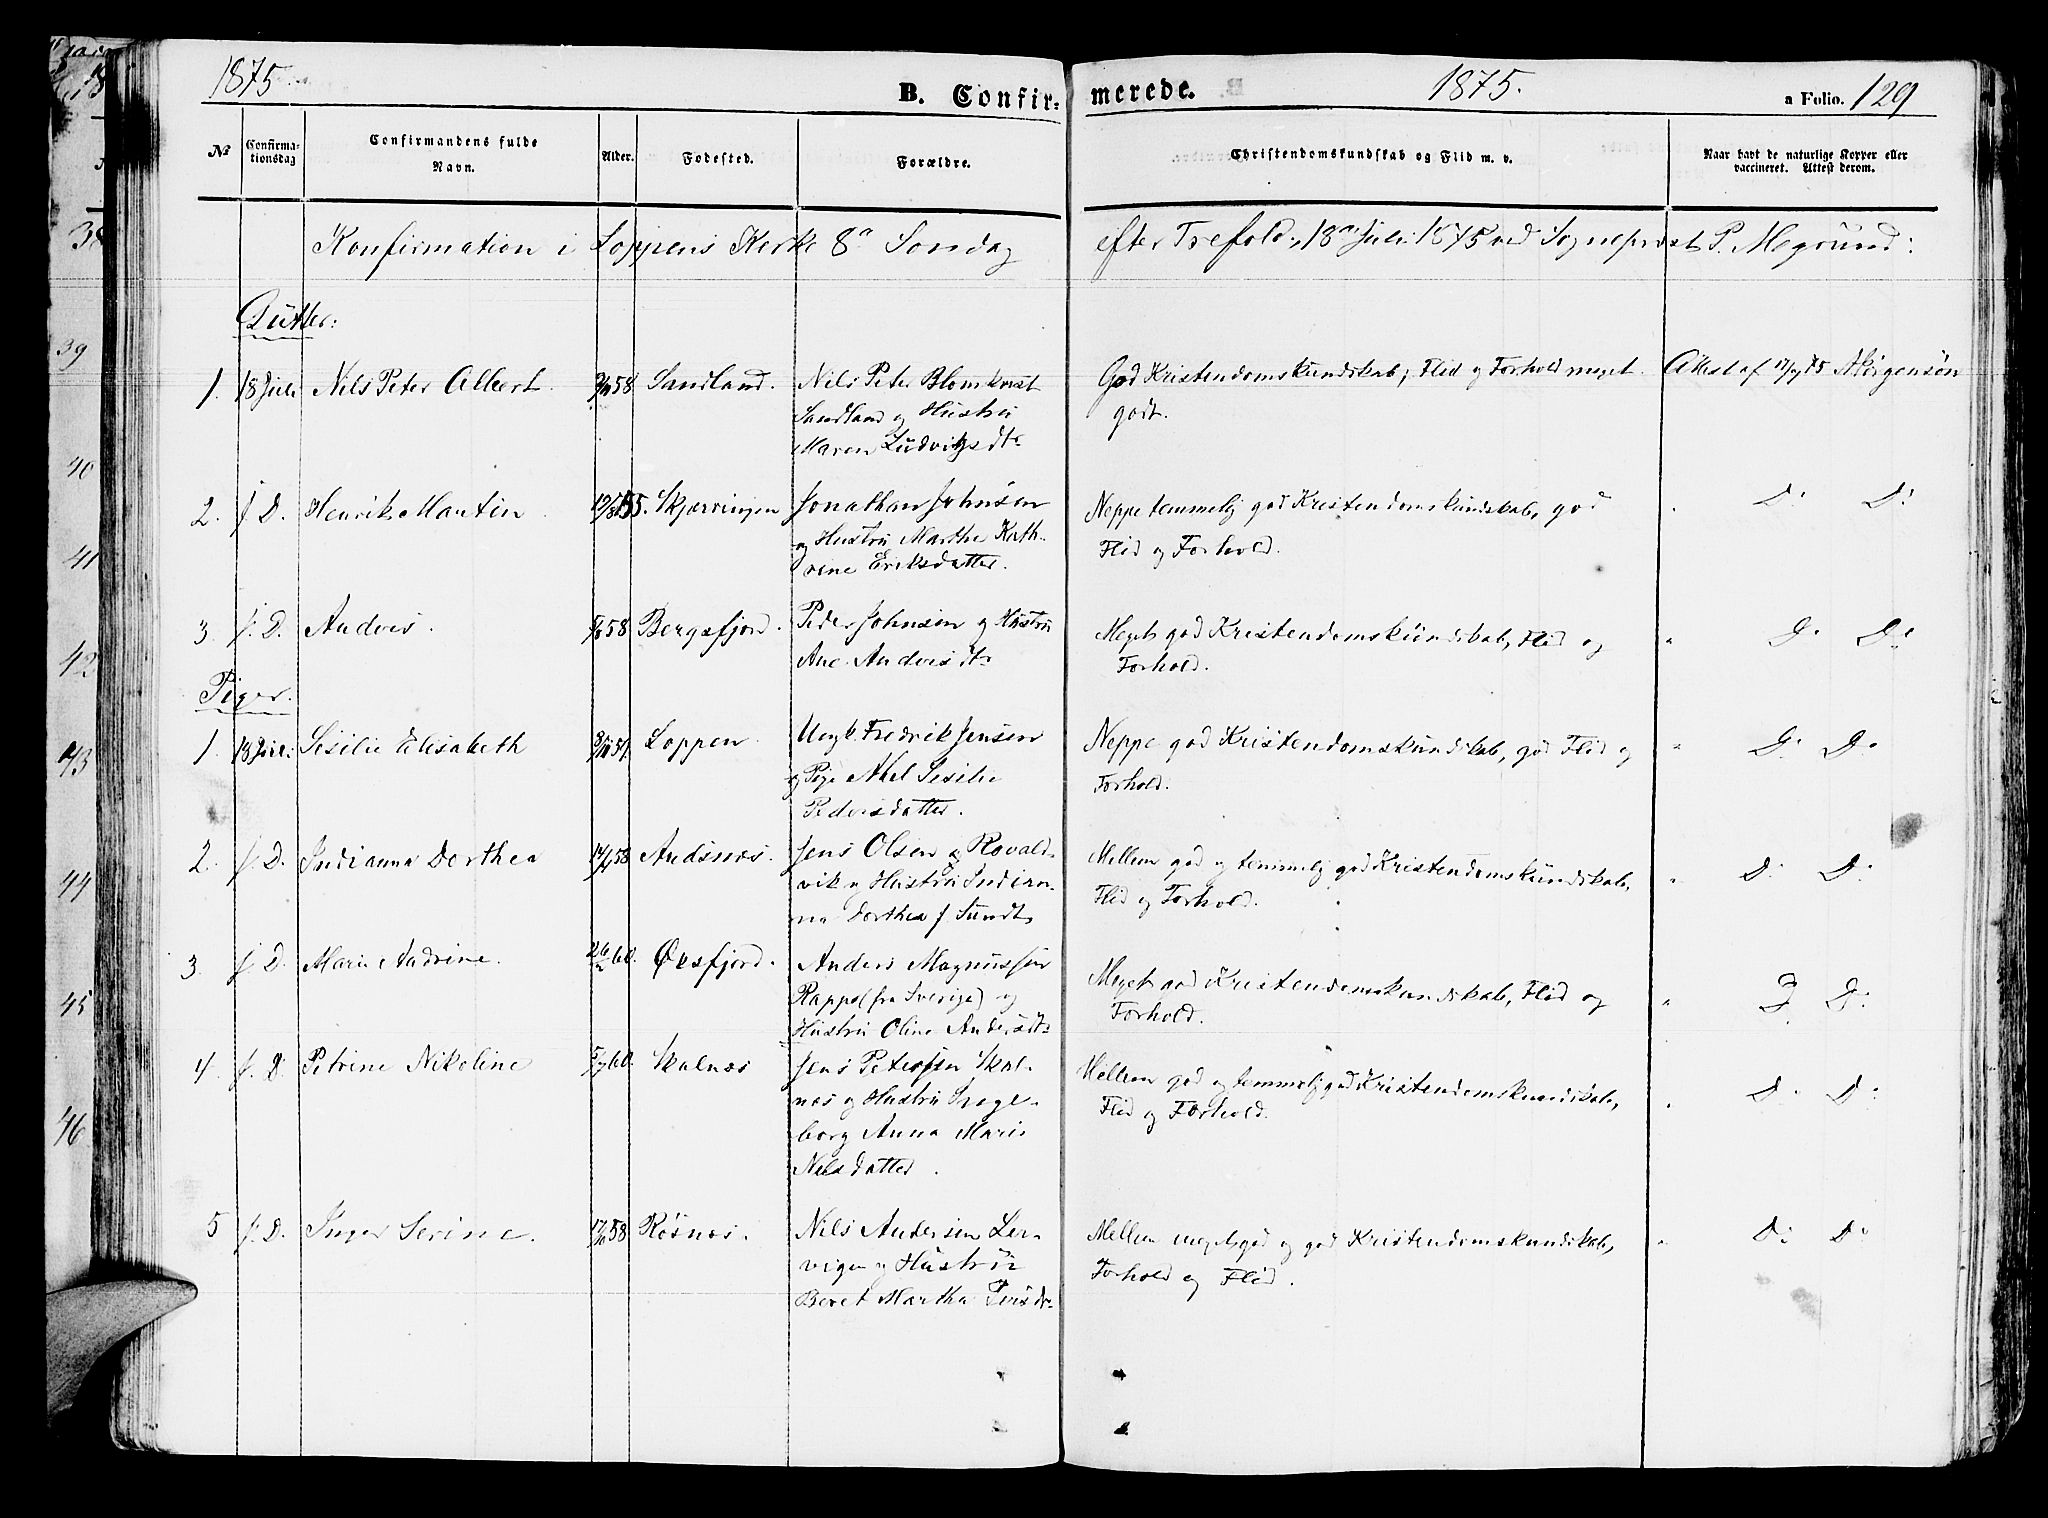 1875.
B. Confirmerede.
1875.
a Folio. 129
No Confirmationsdag Confirmandens fulde Navn. Alder. Fødested. Forældre. Christendomskundskab og Flid m. v. Naar havt de naturlige Kopper eller vaccineret. Attest derom.
Konfirmation i Loppens Kirke 8de Søndag efter Trefold., 18de Juli 1875 ved Sogneprest P.
Gutter:
1. 18 Juli Nils Peter Albert 58 Sandland. Nils Peter Blomkvist God Kristendomskundskab; Flid og Forhold meget Attest af 75
Sandland og Hustru godt.
Maren Ludvigsdtr
2. f. D. Henrik Martin 55. Skjærvingen Jonathan Johnsen Neppe temmelig god Kristendomskundskab, god " Do Do
og Hustru Marthe Kath- Flid og Forhold.
rine Eriksdatter.
3. f. D. Anders. 58 Bergsfjord. Peder Johnsen og Hustru Meget god Kristendomskundskab, Flid og " Do Do
Ane Andersdtr Forhold.
Piger.
1. 18 Juli: Sesilie Elisabeth Loppen Ungk. Fredrik Jensen Neppe god Kristendomskundskab, god Flid og " Do Do
og Pige Abel Sesilie Forhold.
Pedersdatter.
2. f. D. Indianna Dorthea 14/4 58 Andsnæs. Jens Olsen Rovald- Mellem god og temmelig god Kristendomskundskab, " Do Do
vik og Hustru Indian- Flid og Forhold.
na Dorthea f. Sundt
3. f. D. Marie Andrine. 60. Øksfjord. Anders Magnussen Meget god Kristendomskundskab, Flid og " Do Do
Rapps (fra Sverige) og Forhold.
Hustru Oline Andersdtr
4. f. D. Petrine Nikoline 5/7 60. Skalnæs Jens Petersen Skal- Mellem god og temmelig god Kristendomskundskab, " Do Do
næs og Hustru Inge- Flid og Forhold.
borg Anna Marie
Nilsdatter.
5 f. D. Inger Serine. 17/10 58 Røsnæs. Nils Andersen Ler- Mellem meget god og god Kristendomskundskab, " Do Do
vigen og Hustru Forhold og Flid.
Beret Martha
39
40
41
42
43
44
45
46